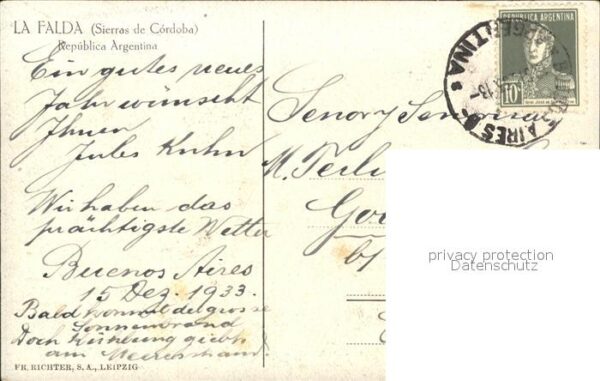 LA FALDA (Sierras de Córdoba)
República Argentina
Ein gutes neues
Jahr wünscht
Ihnen
Jules Kuhn
Wir haben das
prächtigste Wetter
Buenos Aires
15 Dez. 1933.
Bald kommt der grosse
Sonnenbrand
Doch Kühlung giebt
am Meeresstrand.
FR. RICHTER, S. A., LEIPZIG
REPUBLICA ARGENTINA
10
AIRES
ARGENTINA
13
Senor y Senora
M.
privacy protection
Datenschutz